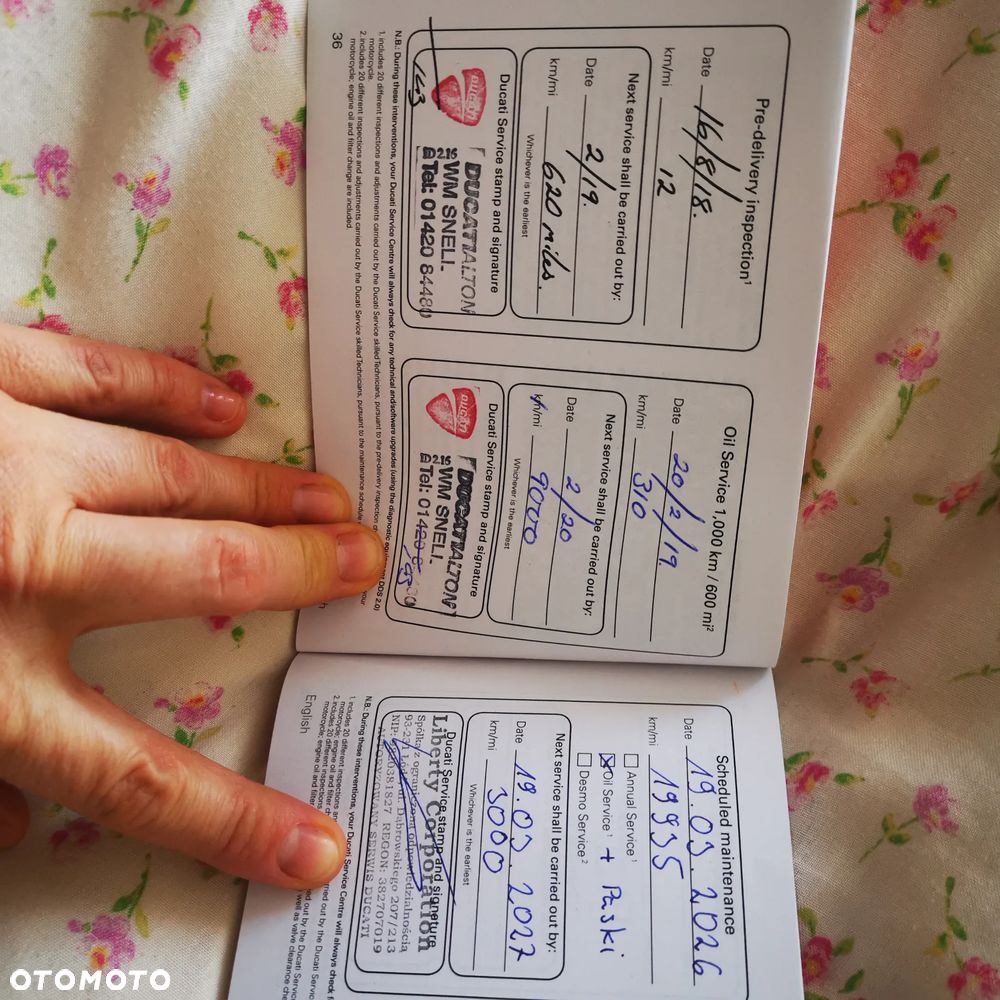 Pre-delivery inspection¹
Date 16/8/18.
km/mi 12
Next service shall be carried out by:
Date 2/19.
km/mi 620 miles.
Whichever is the earliest
Ducati Service stamp and signature
DUCATI
DUCATI ALTON
WM SNELL
Tel: 01420 84480
N.B.: During these interventions, your Ducati Service Centre will always check for any technical and/software upgrades (using the diagnostic equipment DDS 2.0)
1. includes 20 different inspections and adjustments carried out by the Ducati Service skilled Technicians, pursuant to the pre-delivery inspection your
motorcycle.
2. includes 20 different inspections and adjustments carried out by the Ducati Service skilled Technicians, pursuant to the maintenance schedule
motorcycle; engine oil and filter change are included.
36
Oil Service 1,000 km / 600 mi²
Date 20/2/19.
km/mi 310
Next service shall be carried out by:
Date 2/20
km/mi 90000
Whichever is the earliest
Ducati Service stamp and signature
DUCATI
DUCATI ALTON
WM SNELL
Tel: 01420
Scheduled maintenance
Date 19.03.2026
km/mi 19935
Annual Service¹
Oil Service¹ + Paski
Desmo Service²
Next service shall be carried out by:
Date 19.03.2027
km/mi 3000
Whichever is the earliest
Ducati Service stamp and signature
Liberty Corporation
Spółka z ograniczoną odpowiedzialnością
93-231 Łódź, ul. Dąbrowskiego 207/213
REGON: 382707019
AUTORYZOWANY SERWIS DUCATI
N.B.: During these interventions, your Ducati Service Centre will always check
1. includes 20 different inspections and
motorcycle; engine oil and filter
2. includes 20 different inspections
motorcycle; engine oil and filter
English
OTOMOTO